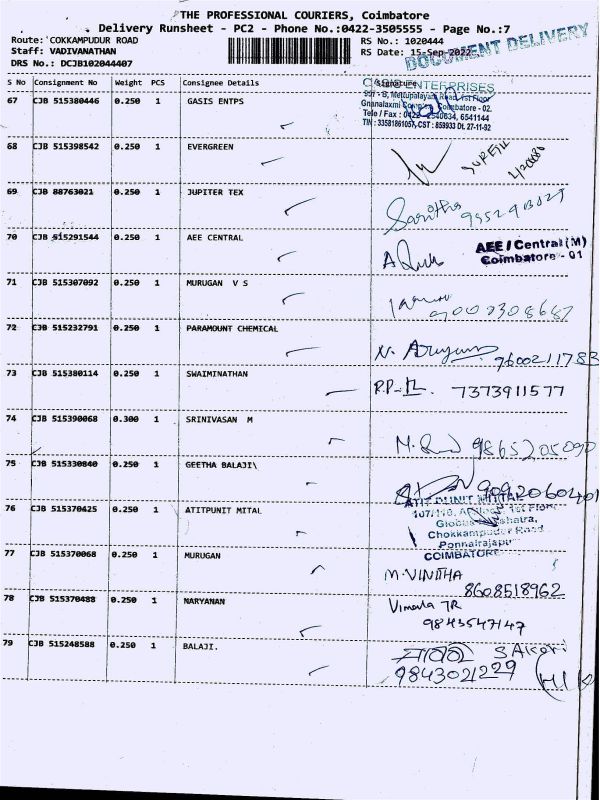 THE PROFESSIONAL COURIERS, Coimbatore
Delivery Runsheet - PC2 - Phone No.:0422-3505555 - Page No.:7
Route: COKKAMPUDUR ROAD
Staff: VADIVANATHAN
DRS No.: DCJB102044407
RS No.: 1020444
RS Date: 15-Sep-2022
DOCUMENT DELIVERY
S No Consignment No Weight PCS Consignee Details Signature
67 CJB 515380446 0.250 1 GASIS ENTPS
OASIS ENTERPRISES
Gnanalaxmi Coimbatore - 02.
Tele / Fax : 0422 2540634, 6541144
TIN : 33581861057, CST : 859933 Dt. 27-11-92
68 CJB 515398542 0.250 1 EVERGREEN
69 CJB 88763021 0.250 1 JUPITER TEX
Saritha
70 CJB 515291544 0.250 1 AEE CENTRAL
AEE / Central (M)
Coimbatore - 01
71 CJB 515307092 0.250 1 MURUGAN V S
72 CJB 515232791 0.250 1 PARAMOUNT CHEMICAL
9600211783
73 CJB 515380114 0.250 1 SWAIMINATHAN
7373911577
74 CJB 515390068 0.300 1 SRINIVASAN M
9865205090
75 CJB 515330840 0.250 1 GEETHA BALAJI\
9092060401
76 CJB 515370425 0.250 1 ATITPUNIT MITAL
1st Floor
Chokkampudur Road
Ponnairajapur
COIMBATORE
77 CJB 515370068 0.250 1 MURUGAN
M.VINITHA
8608518962
78 CJB 515370488 0.250 1 NARYANAN
Vimala TR
9843547147
79 CJB 515248588 0.250 1 BALAJI.
9843021229